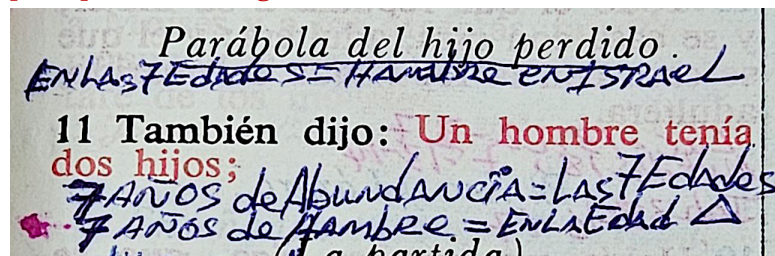 Parábola del hijo perdido.
EN LAS 7 Edades = HAMBRE EN ISRAEL
11 También dijo: Un hombre tenía
dos hijos;
7 AÑOS de Abundancia = LAS 7 Edades
7 AÑOS de HAMBRE = EN LA Edad △
(La partida)